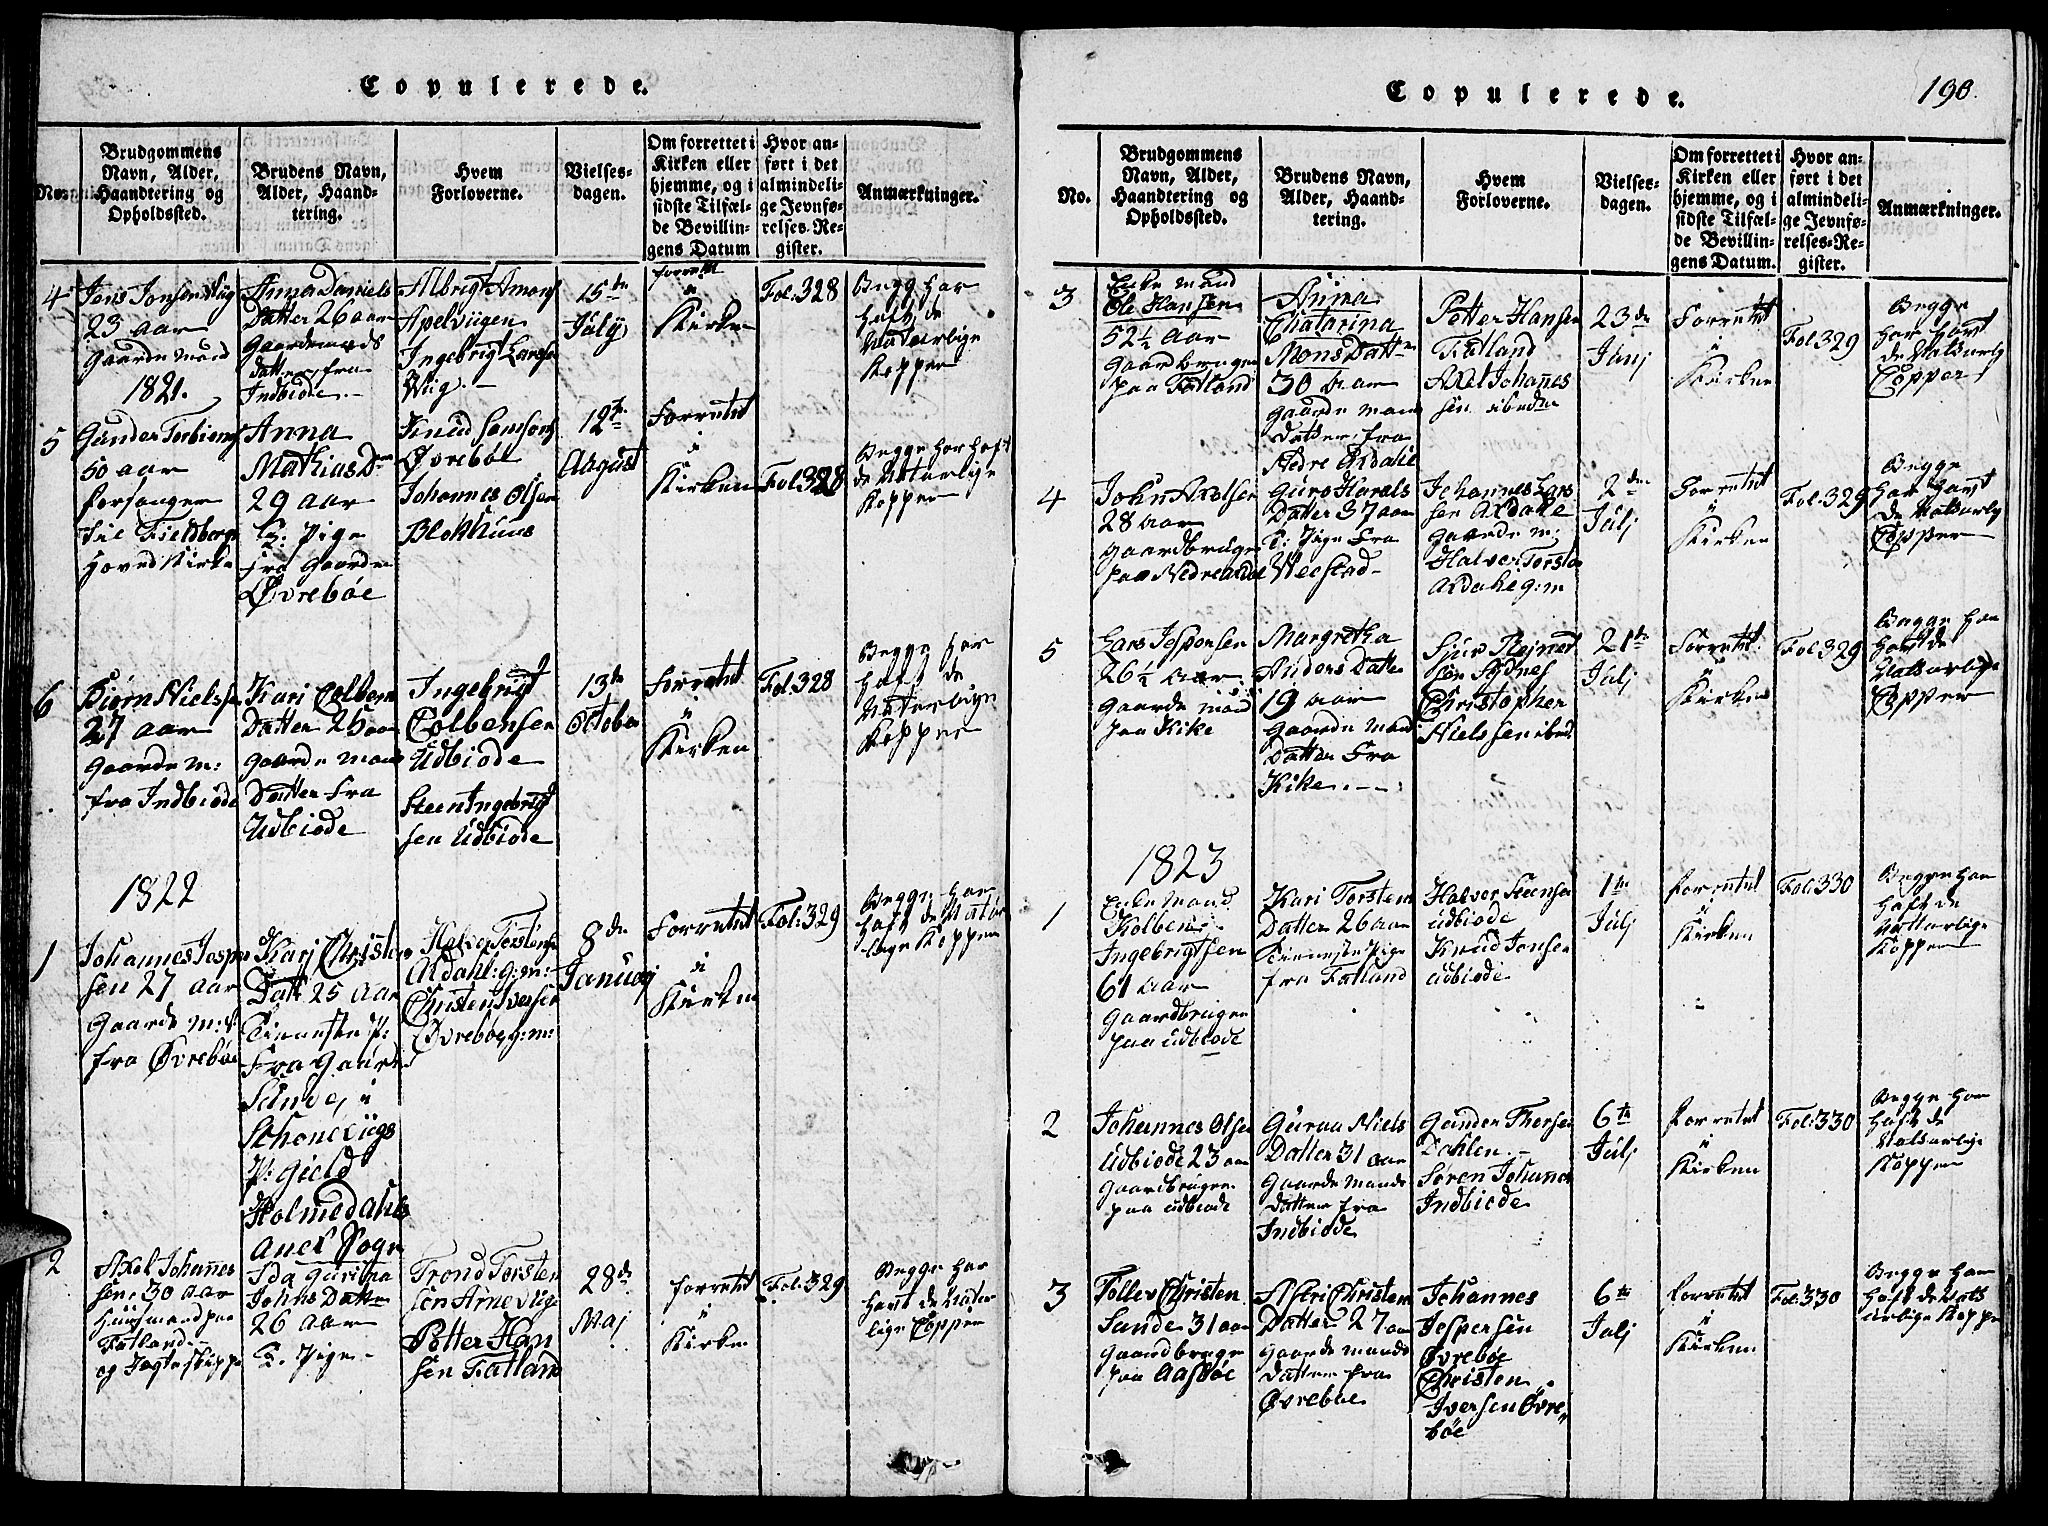 Copulerede.
No.
Brudgommens
Navn, Alder,
Haandtering og
Opholdssted.
Brudens Navn,
Alder, Haand-
tering.
Hvem
Forloverne.
Vielses-
dagen.
Om forrettet i
Kirken eller
hjemme, og i
sidste Tilfæl-
de Bevillin-
gens Datum
Hvor an-
ført i det
almindeli-
ge Jevnfø-
relses-Re-
gister.
Anmærkninger.
4
Jens Jonsen
23 aar
Gaarde Mand
1821.
Anna Daniels
Datter 26 aar
Gaardemands
Datter fra
Indbiode
Albrigt Amons
Apelviigen
Ingebrigt Larsen
Wiig.
15de
July
forrettet
i
Kirken
Fol: 328
Begge har
haft de
Naturlige
Kopper
5
Gunder Torbiorns
50 aar
forsanger
til Fieldberg
Hoved Kirke
Anna
Mathias Dr
29 aar
T. Pige
fra Gaarden
Øvrebøe
Knud Samsons
Øvrebøe
Johannes Olsen
Blokhuus
12te
August
Forrettet
i
Kirken
Fol: 328
Begge har haft
de Naturlige
Kopper
6
Biørn Nielssen
27 aar
Gaarde m:
fra Indbiode
Kari Colbens
Datter 25 aar
Gaarde mans
Datter fra
Udbiode
Ingebrigt
Colbensen
Udbiode
Steen Ingebrigt
sen Udbiode
13de
October
Forrettet
i
Kirken
Fol: 328
Begge har
haft de
Naturlige
Kopper
1822
1
Johannes Jesper
sen 27 aar
Gaarde m:
fra Øvrebøe
Kari Christens
Datt 25 Aar
Tieneste P:
fra Gaard
Sunde, i
Schonevigs
P: Gield
Holmedahls
Anex Sogn
Halver Torstens
Aldahl: g: m:
Christen Iversen
Øvrebøe g: m:
8de
Januarj
Forrettet
i
Kirken
Fol: 329
Begge har
haft de Natur
lige Kopper
2
Axel Johannes
sen 30 aar
Huusmand paa
Fatland
og Jagteskipper
Ida Gurina
Johns Datter
26 Aar
T. Pige
Trond Torsten
sen Arnevig
Petter Han
sen Fatland
28de
Maj
forrettet
i
Kirken
Fol: 329
Begge har
havt de Natur
lige Copper
Copulerede.
190.
No.
Brudgommens
Navn, Alder,
Haandtering og
Opholdssted.
Brudens Navn,
Alder, Haand-
tering.
Hvem
Forloverne.
Vielses-
dagen.
Om forrettet i
Kirken eller
hjemme, og i
sidste Tilfæl-
de Bevillin-
gens Datum.
Hvor an-
ført i det
almindelig-
ge Jevnfø-
relses-Re-
gister.
Anmærkninger.
3
Enke Mand
Ole Hansen
52½ Aar
Gaardbruger
paa Fatland
Anna
Chatarina
Mons Datter
30 Aar
Gaarde mans
Datter fra
Nedre Ardalle
Petter Hansen
Fatland
Axel Johannes
sen ibeden
23de
Junj
Forrettet
i
Kirken
Fol: 329
Begge
har havt
de Naturlig
Copper
4
John Axelsen
28 Aar
Gaardbruger
paa Nedre
Guro Harals
Datter 37 aar
T: Pige fra
Weestad
Johannes Lars
sen Aldahle
Gaarde m:
Halver Torsten
Aldahle g: m
2den
Julj
Forrettet
i
Kirken
Fol: 329
Begge
har havt
de Naturlig
Copper
5
Lars Jespersen
26½ Aar
Gaarde mand
paa Kike
Margretha
Anders Datter
19 Aar
Gaarde Mands
Datter fra
Kike
Siur Rejners
sen Sydnes
Christopher
Nielssen ibid
21de
Julj
Forrettet
i
Kirken
Fol: 329
Begge har
havt de
Naturlige
Copper
1823
1
Enke Mand
Kolben
Ingebrigtsen
61 Aar
Gaardbruger
paa Udbiode
Kari Torstens
Datter 26 aar
Tieneste Pige
fra Fatland
Halver Steensen
Udbiode
Knud Jonsen
Udbiode
1te
Julj
forrettet
i
Kirken
Fol: 330
Begge har
haft de
Naturlige
Kopper
2
Johannes Olsen
Udbiode 23 aar
Gaardbruger
paa Udbiode
Guroa Niels
Datter 31 aar
Gaarde mands
Datter fra
Indbiode
Gunder Thorsen
Dahlen
Søren Johannes
Indbiode
6te
Julj
forrettet
i
Kirken
Fol: 330
Begge har
haft de
Naturlige
Kopper
3
Tollev Christen
Sunde 31 aar
Gaardbruger
paa Aasbøe
Astri Christens
Datter 27 aar
Gaarde mands
Datter fra
Øvrebøe
Johannes
Jespersen
Øvrebøe
Christen
Iversen Øvre
bøe
6te
Julj
forrettet
i
Kirken
Fol: 330
Begge har
haft de Nat
urlige Kopper